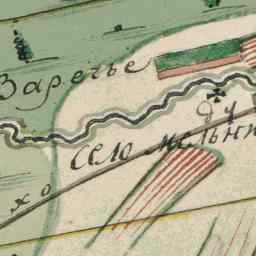 Заречье
ду
село мельни
хо